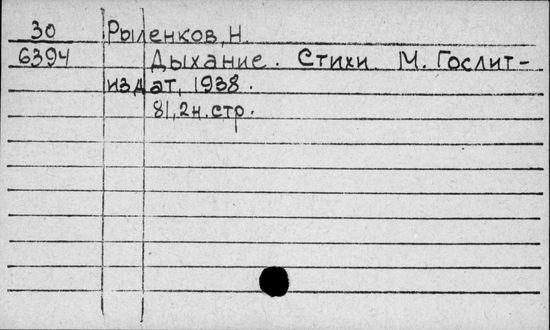 30 Рыленков, Н.
6394 Дыхание. Стихи М. Гослит-
издат, 1938.
81, 2н. стр.